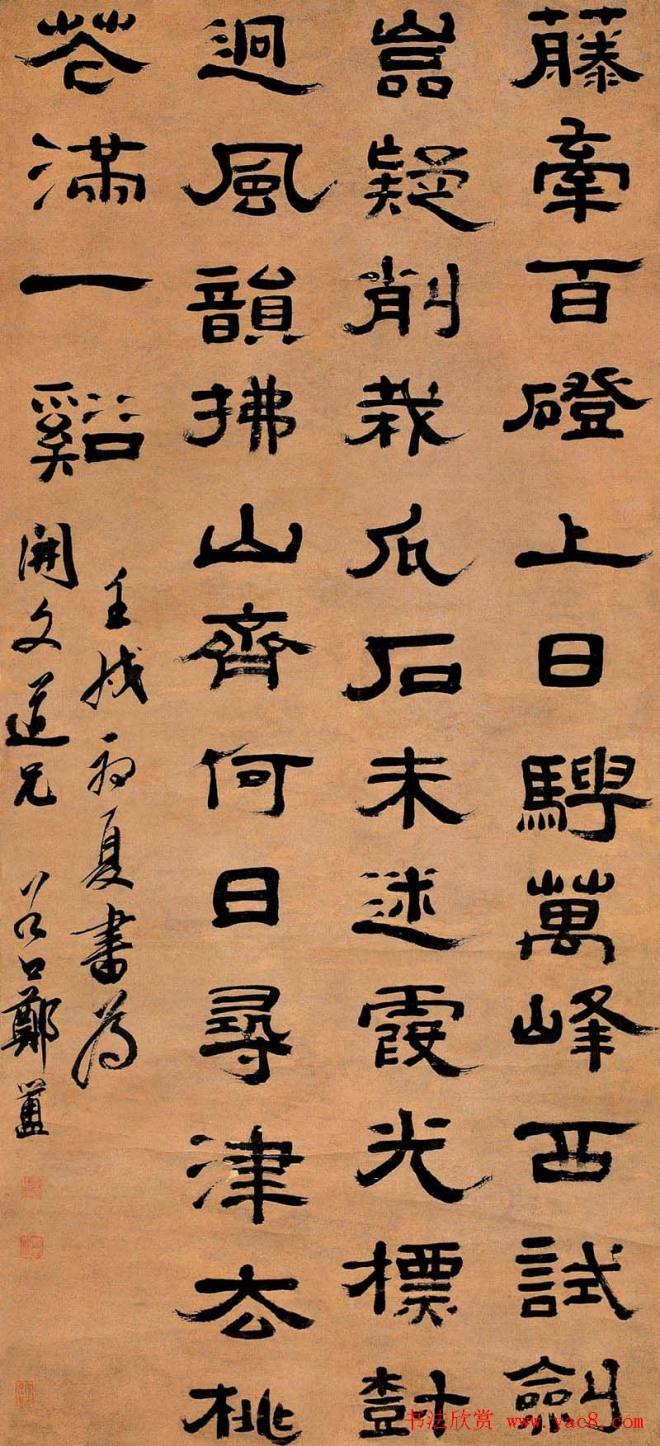 藤牽百磴上日騁萬峰西試劍
嵓疑削栽瓜石未迷霞光標樹
迥風韻拂山齊何日尋津去桃
花滿一谿
壬戌初夏書為
開文道兄 谷口鄭簠
书法欣赏 www.yac8.com